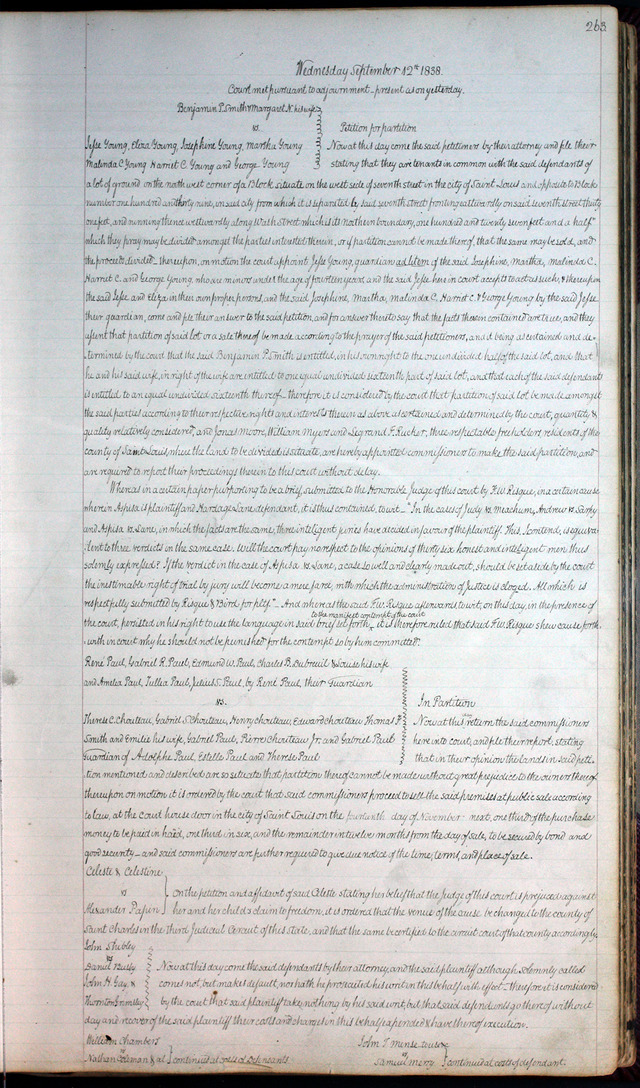 263
Wednesday September 12th 1838.
Court met pursuant to adjournment - present as on yesterday.
Benjamin P. Smith & Margaret N his wife
vs. Petition for partition
Jesse Young, Eliza Young, Josephine Young, Martha Young Now at this day come the said petitioners by their attorney and file their
Malinda C Young Harriet C. Young and George Young stating that they are tenants in common with the said defendants of
a lot of ground on the northwest corner of a Block situate on the west side of seventh street in the city of Saint Louis and opposite to Block
number one hundred and thirty nine, on said city from which it is separated by said seventh street fronting eastwardly on said seventh street thirty
one feet, and running thence westwardly along Wash street which is its northern boundary, one hundred and twenty seven feet and a half
which they pray may be divided amongst the parties interested therein, or if partition cannot be made thereof, that the same may be sold, and
the proceeds divided. thereupon, on motion the court appoint Jesse Young, guardian ad litem of the said Josephine, Martha, malinda C.
Harriet C. and George Young, who are minors under the age of fourteen years, and the said Jesse here in court accepts to act as such, & thereupon
the said Jesse and Eliza in their own proper persons, and the said Josephine, Martha, malinda C, Harriet C. & George Young by the said Jesse
their guardian, come and file their answer to the said petition, and for answer thereto say that the facts therein contained are true, and they
assent that partition of said lot or a sale thereof be made according to the prayer of the said petitioners, and it being ascertained and de-
termined by the court that the said Benjamin P. Smith is entitled, in his own right to the one undivided half of the said lot, and that
he and his said wife, in right of the wife are entitled to one equal undivided sixteenth part of said lot, and that each of the said defendants
is entitled to an equal undivided sixteenth thereof - therefore it is considered by the court that partition of said lot be made amongst
the said parties according to their respective rights and interests therein as above ascertained and determined by the court, quantity &
quality relatively considered, and Jonas Moore, William Myers and Legrand F. Rucker, three respectable freeholders residents of the
county of Saint Louis where the land to be divided is situate, are hereby appointed commissioners to make the said partition, and
are required to report their proceedings therein to this court without delay.
Whereas in a certain paper purporting to be a brief, submitted to the Honorable Judge of this court by F.W. Risque, in a certain cause
wherein Aspisa is plaintiff and Hardage Lane defendant, it is thus contained, to wit - "In the cases of Judy vs. meachum, Andrew vs. Sarpy
and Aspisa vs. Lane, in which the facts are the same, three inteligent juries have decided in favour of the plaintiff. This, I contend, is equiva-
lent to three verdicts in the same case. Will the court pay no respect to the opinions of thirty six honest and inteligent men thus
solemnly expressed? If the verdict in the case of Aspisa vs. Lane, a case so well and clearly made out, should be set aside by the court
the inestimable right of trial by jury will become a mere farce, with which the administration of Justice is cloged. All which is
respectfully submitted by Risque & Bird for pltff." - And whereas the said F.W. Risque afterwards to wit, on this day, in the presence of
to the manifest contempt of the court
the court, persisted in his right to use the language in said brief set forth, it is therefore ruled, that said F.W. Risque shew cause forth-
with in court why he should not be punished for the contempt so by him committed.
René Paul, Gabriel R. Paul, Edmund W. Paul, Charles B. Dubreuil & Louise his wife
and Amelia Paul, Tullia Paul, Julius T. Paul, by René Paul, their Guardian
vs. In Partition
Therese C. Chouteau, Gabriel S. Chouteau, Henry Chouteau, Edward Chouteau Thomas F. Now at this day return the said commissioners
Smith and Emilie his wife, Gabriel Paul, Pierre Chouteau Jr. and Gabriel Paul here into court, and file their report, stating
Guardian of Adolphe Paul, Estelle Paul and Therese Paul that in their opinion the lands in said peti-
tion mentioned and described are so situate that partition thereof cannot be made without great prejudice to the owners thereof
thereupon on motion it is ordered by the court that said commissioners proceed to sell the said premises at public sale according
to law, at the Court house door in the city of Saint Louis on the fourteenth day of November next, one third of the purchase
money to be paid in hand, one third in six, and the remainder in twelve months from the day of sale, to be secured by bond and
good security - and said commissioners are further required to give due notice of the time, terms, and place of sale.
Celeste & Celestine
vs on the petition and affidavit of said Celeste stating her belief that the Judge of this court is prejudiced against
Alexander Papin her and her child's claim to freedom, it is ordered that the venue of the cause be changed to the county of
Saint Charles in the Third Judicial Circuit of this State, and that the same be certified to the circuit court of that county accordingly.
John Shibley
vs
Daniel Busby Now at this day come the said defendants by their attorney, and the said plaintiff although solemnly called
John H. Gay, & comes not, but makes default, nor hath he prosecuted his writ in this behalf with effect. Therefore it is considered
Thornton Grimsley by the court that said plaintiff take nothing by his said writ, but that said defendants go thereof without
day and recover of the said plaintiff their costs and charges in this behalf expended & have thereof execution.
William Chambers John T.
vs vs
Nathan Coleman & al continued at costs of defendants Samuel Merry continued at costs of defendant.